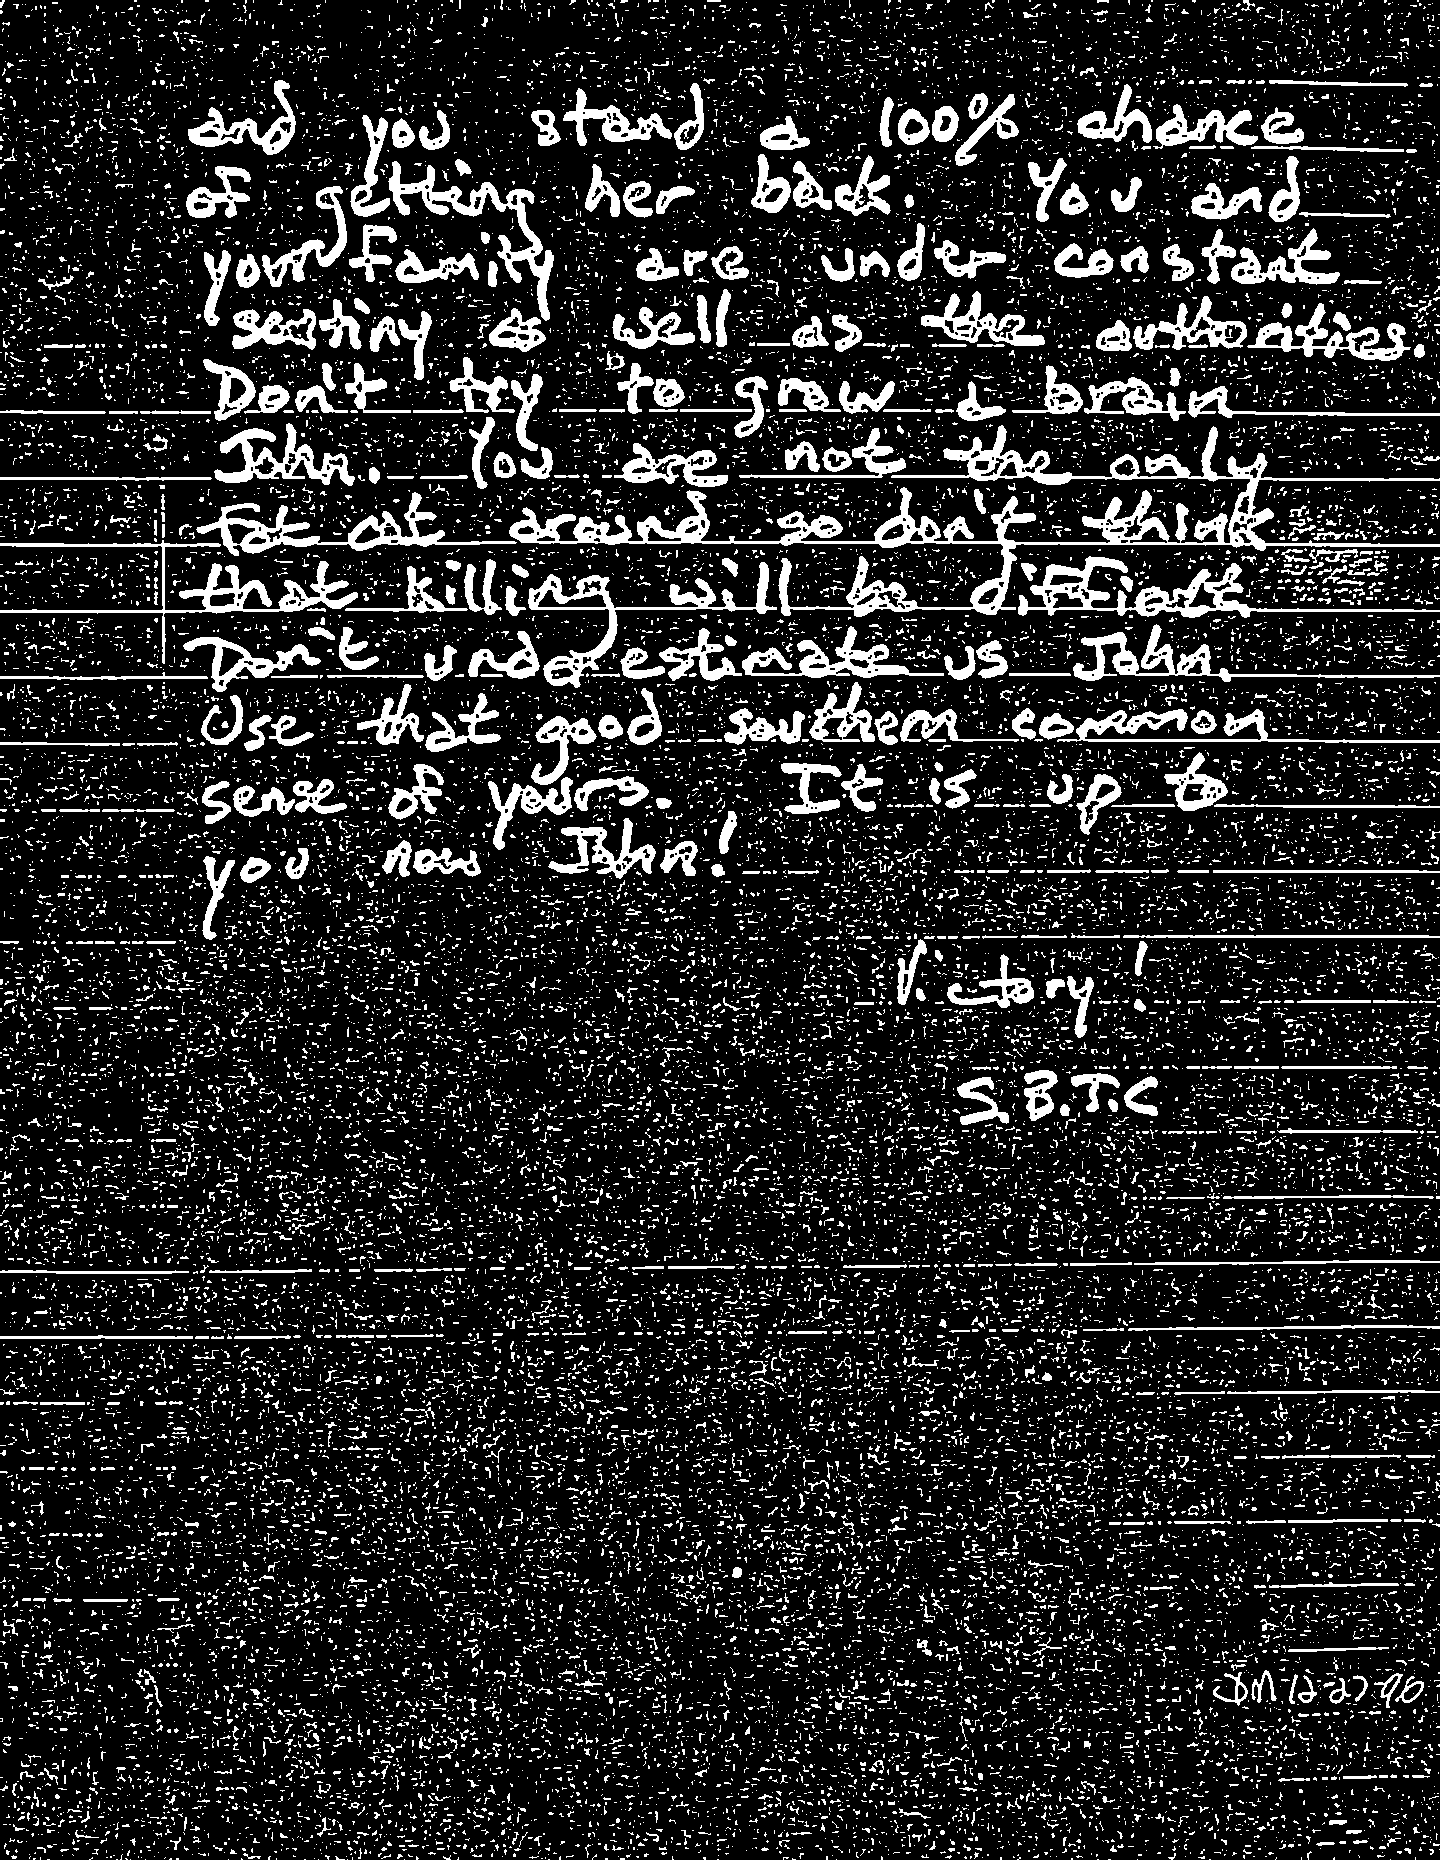 and you stand a 100% chance
of getting her back. You and
your family are under constant
scrutiny as well as the authorities.
Don't try to grow a brain
John. You are not the only
fat cat around so don't think
that killing will be difficult.
Don't underestimate us John.
Use that good southern common
sense of yours. It is up to
you now John!
Victory!
S.B.T.C
DM-12-27-96